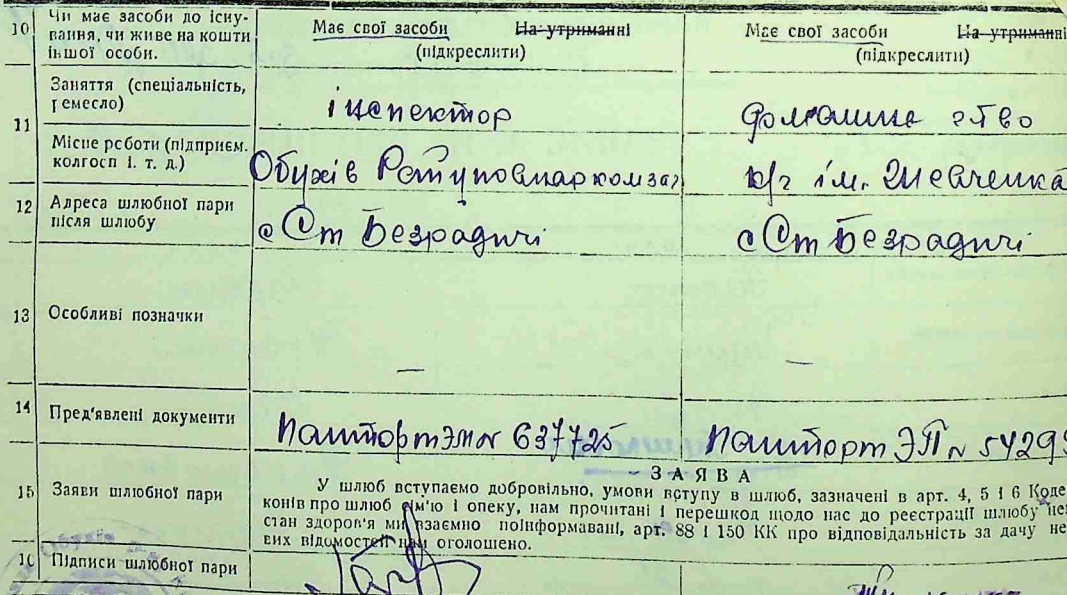 10 Чи має засоби до існу-
вання, чи живе на кошти
іншої особи.
Має свої засоби На утриманні
(підкреслити)
Має свої засоби На утриманні
(підкреслити)
11 Заняття (спеціальність,
ремесло)
інспектор
домашнє
Місце роботи (підприєм.
колгосп і. т. д.)
Обухів
к/г ім. Шевченка
12 Адреса шлюбної пари
після шлюбу
с Ст Безрадичі
с Ст Безрадичі
13 Особливі позначки
—
—
14 Пред'явлені документи
Пашпорт ЭМ № 637725
Пашпорт ЭП № 54299
15 Заяви шлюбної пари
ЗАЯВА
У шлюб вступаємо добровільно, умови вступу в шлюб, зазначені в арт. 4, 5 і 6 Коде
конів про шлюб сім'ю і опеку, нам прочитані і перешкод щодо нас до реєстрації шлюбу не
стан здоров'я ми взаємно поінформавані, арт. 88 і 150 КК про відповідальність за дачу не
вих відомостей нам оголошено.
16 Підписи шлюбної пари